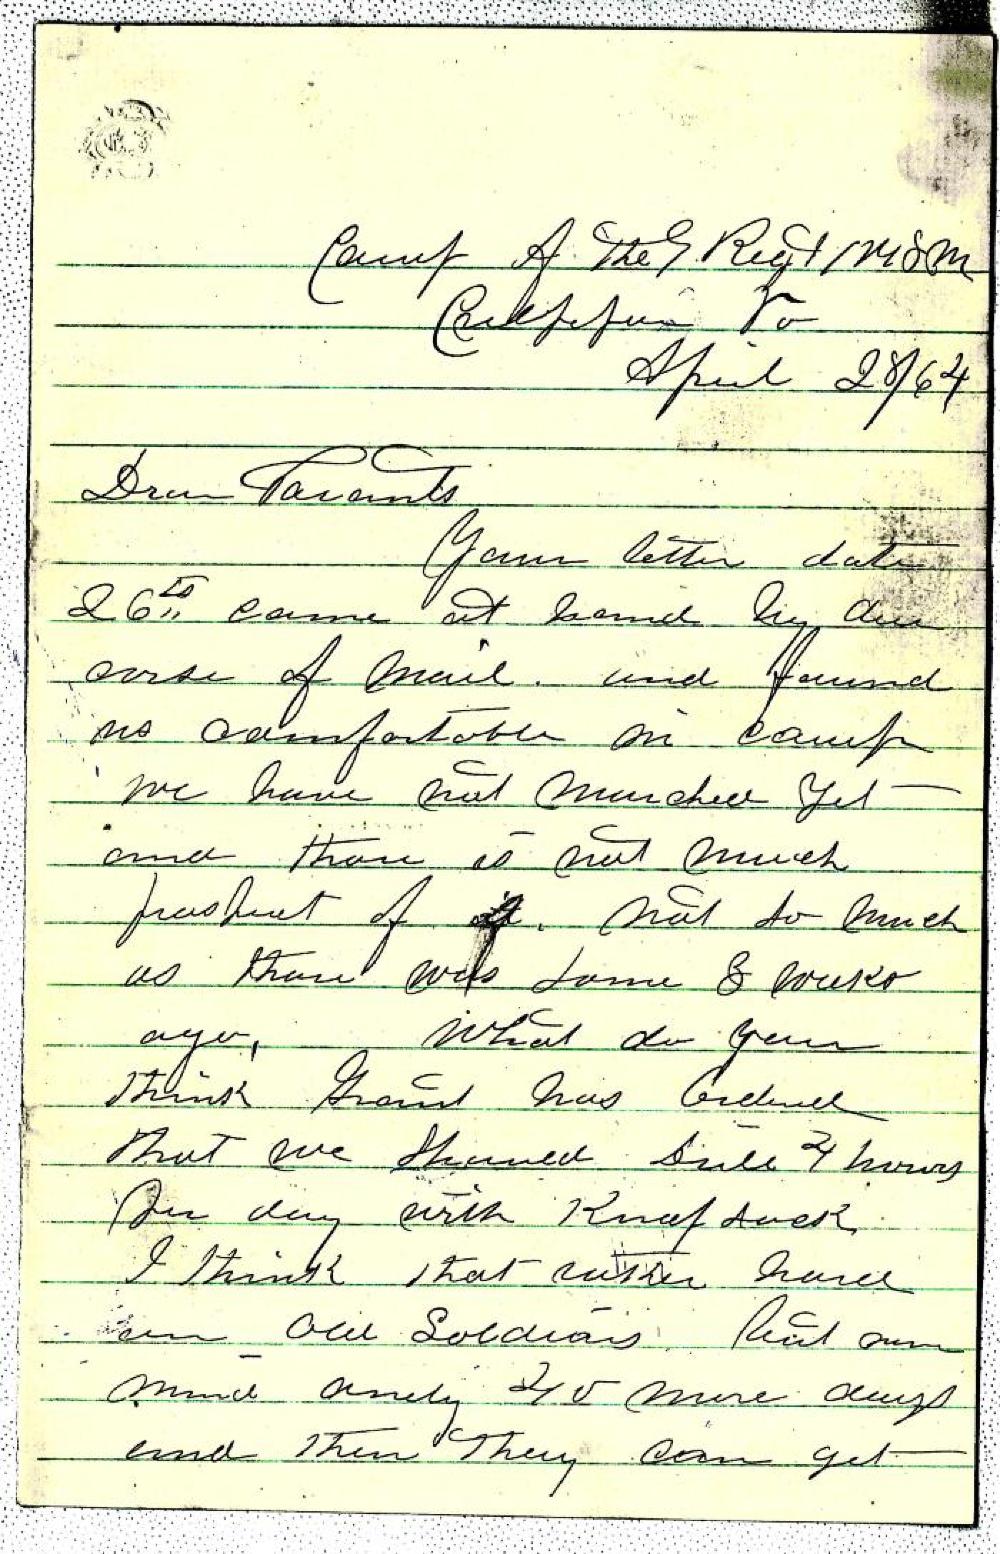 Camp of the 9 Regt NYSM
Culpeper Va
April 28/64
Dear Parants
Your letter date
26th came at hand by due
corse of mail. and found
us comfortable in camp
we have not marched yet
and thare is not much
prospect of it. not so much
as thare was some 3 weeks
ago, What do you
think Grant has Ordered
that we should drill 4 hours
per day with Knapsack
I think that rather hard
on Old Soldiars but
mind only 40 more days
and then they can get